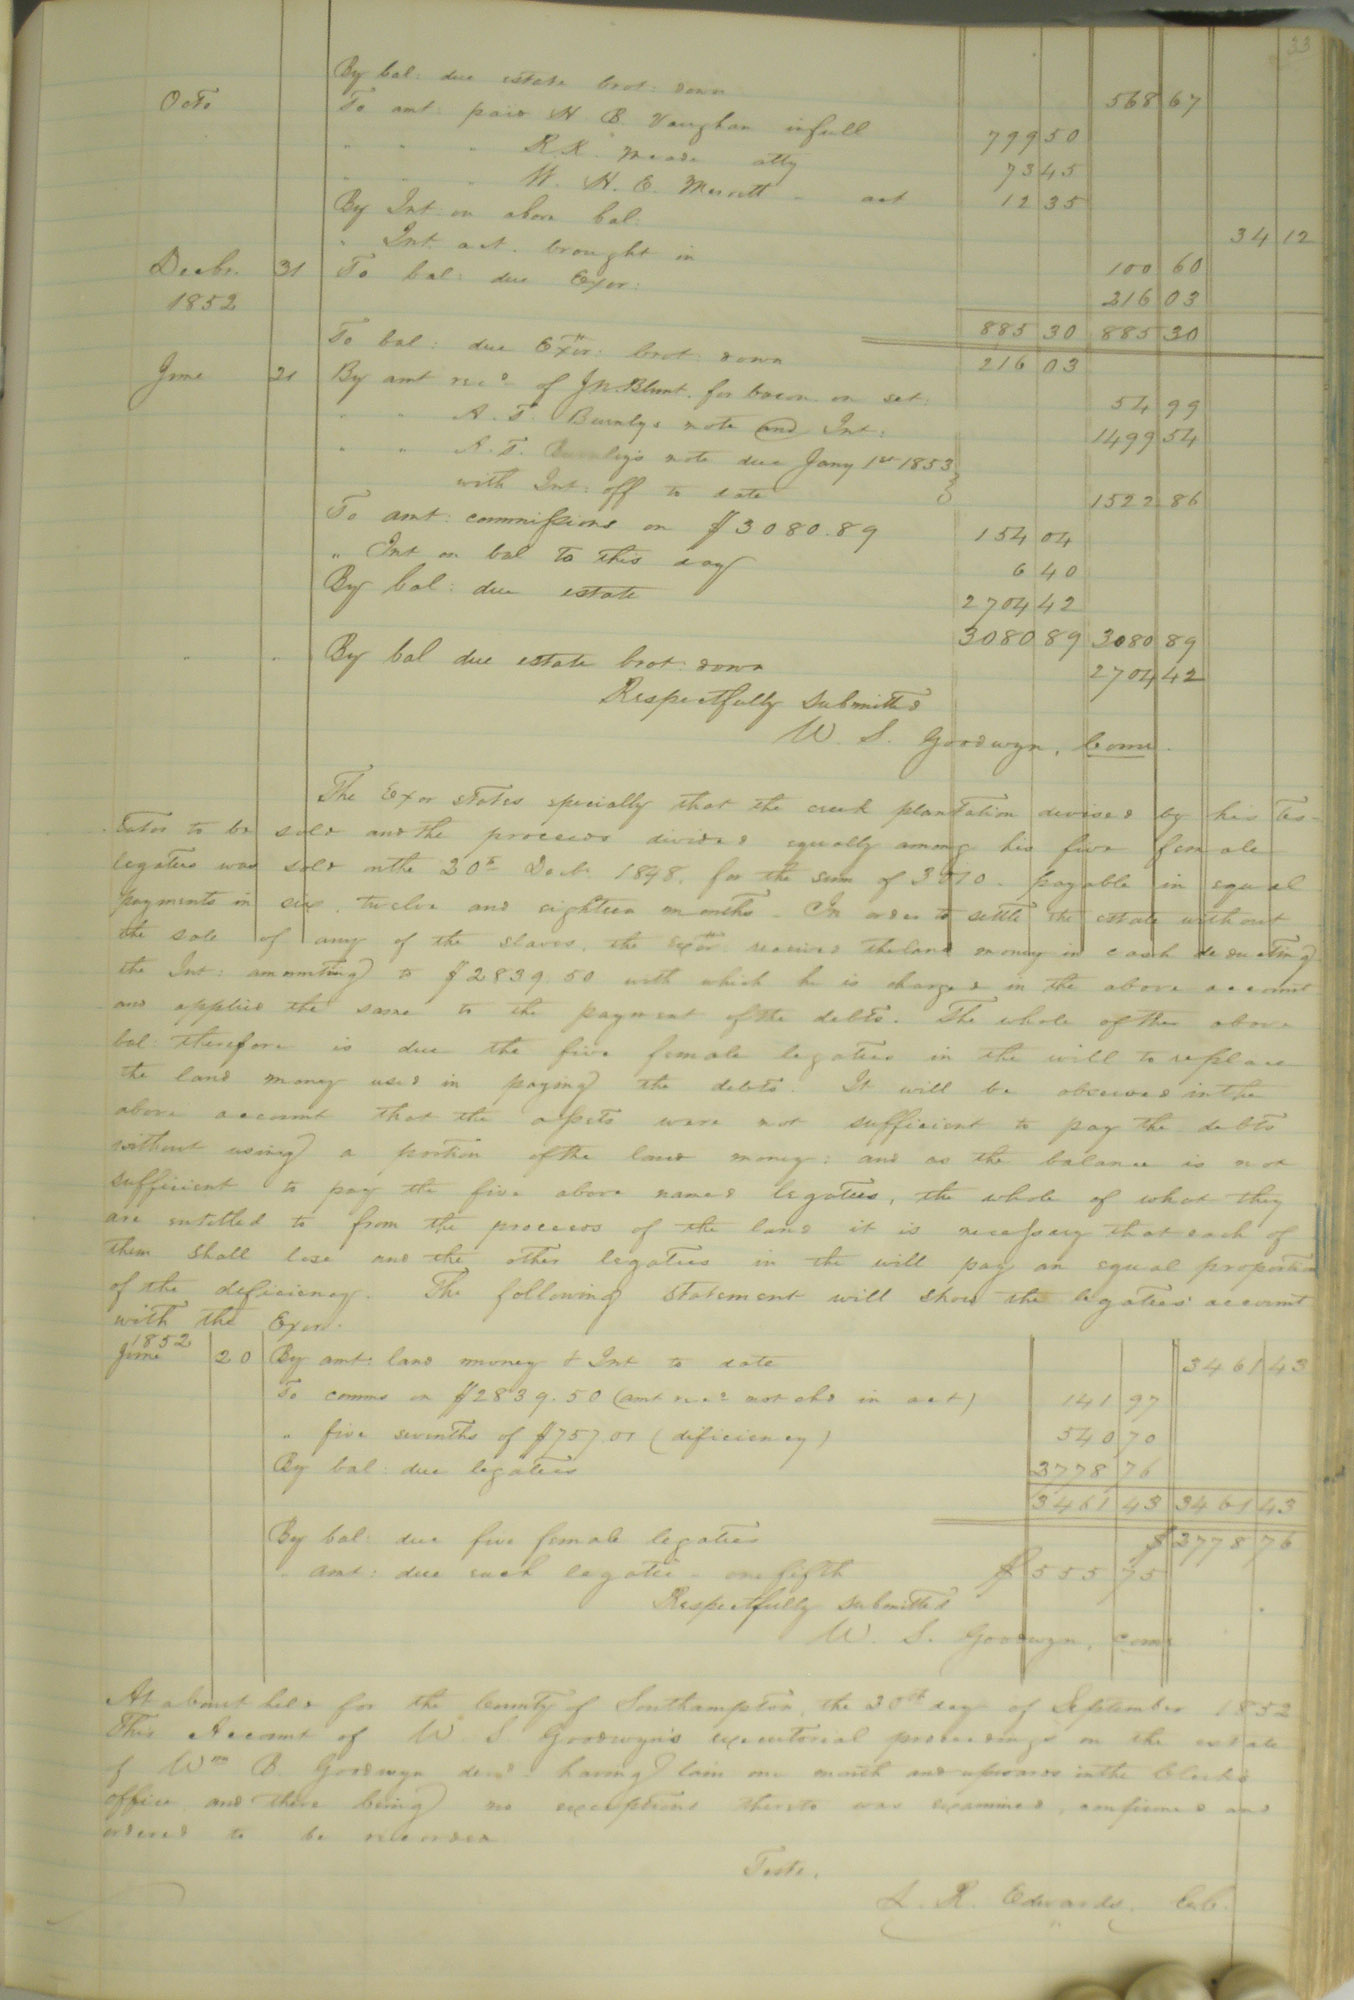 33
By bal: due estate brot: down 568 67
Octo To amt: paid H B. Vaughan infull 799 50
" " " R. K. Meade atty 73 45
" " " W. H. E. Merritt - act 12 35
By Int: on above bal: 34 12
" Int. act. brought in 100 60
Decbr. 31 To bal: due Exor: 216 03
1852 885 30 885 30
To bal: due Exor: brot: down 216 03
June 21 By amt recd of Jn. Blunt. for bacon on set: 54 99
" " A. T. Burnlys note and Int: 1499 54
" " A. T. Burnley's note due Jany 1st 1853
with Int: off to date 1522 86
To amt: commissions on $3080.89 154 04
" Int on bal to this day 6 40
By bal: due estate 2704 42
3080 89 3080 89
" " By bal due estate brot: down 2704 42
Respectfully submitted
W. S. Goodwyn, Comr.
The Exor states specially that the creek plantation devised by his Tes-
tator to be sold and the proceeds divided equally among his five female
legatees was sold on the 20th Decbr. 1848. for the sum of 3010. payable in equal
payments in six, twelve and eighteen months. In order to settle the estate without
the sale of any of the slaves, the exor: received the land money in cash deducting
the Int: amounting to $2839.50 with which he is charged in the above account
and applied the same to the payment of the debts. The whole of the above
bal: therefore is due the five female legatees in the will to replace
the land money used in paying the debts. It will be observed in the
above account that the assets were not sufficient to pay the debts
without using a portion of the land money: and as the balance is not
sufficient to pay the five above named legatees, the whole of what they
are entitled to from the proceeds of the land it is necessary that each of
them shall lose and the other legatees in the will pay an equal proportion
of the deficiency. The following statement will show the legatees' account
with the Exor.
1852
June 20 By amt: land money & Int to date 3461 43
To comms on $2839.50 (amt recd not chd in act) 141 97
" five sevenths of $757.01 (deficiency) 540 70
By bal: due legatees 3778 76
3461 43 3461 43
By bal: due five female legatees $3778 76
" amt: due each legatee - one fifth $555 75
Respectfully submitted
W. S. Goodwyn, comr
At a Court held for the County of Southampton, the 30th day of September 1852
This Account of W. S. Goodwyn's executorial proceedings on the estate
of Wm B. Goodwyn decd. having lain one month and upwards in the Clerks
office and there being no exceptions thereto was examined, confirmed and
ordered to be recorded
Teste,
L. R. Edwards, C.C.